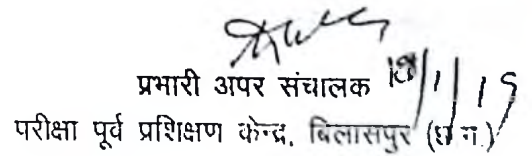 प्रभारी अपर संचालक 18/1/19
परीक्षा पूर्व प्रशिक्षण केन्द्र, बिलासपुर (छ.ग.)